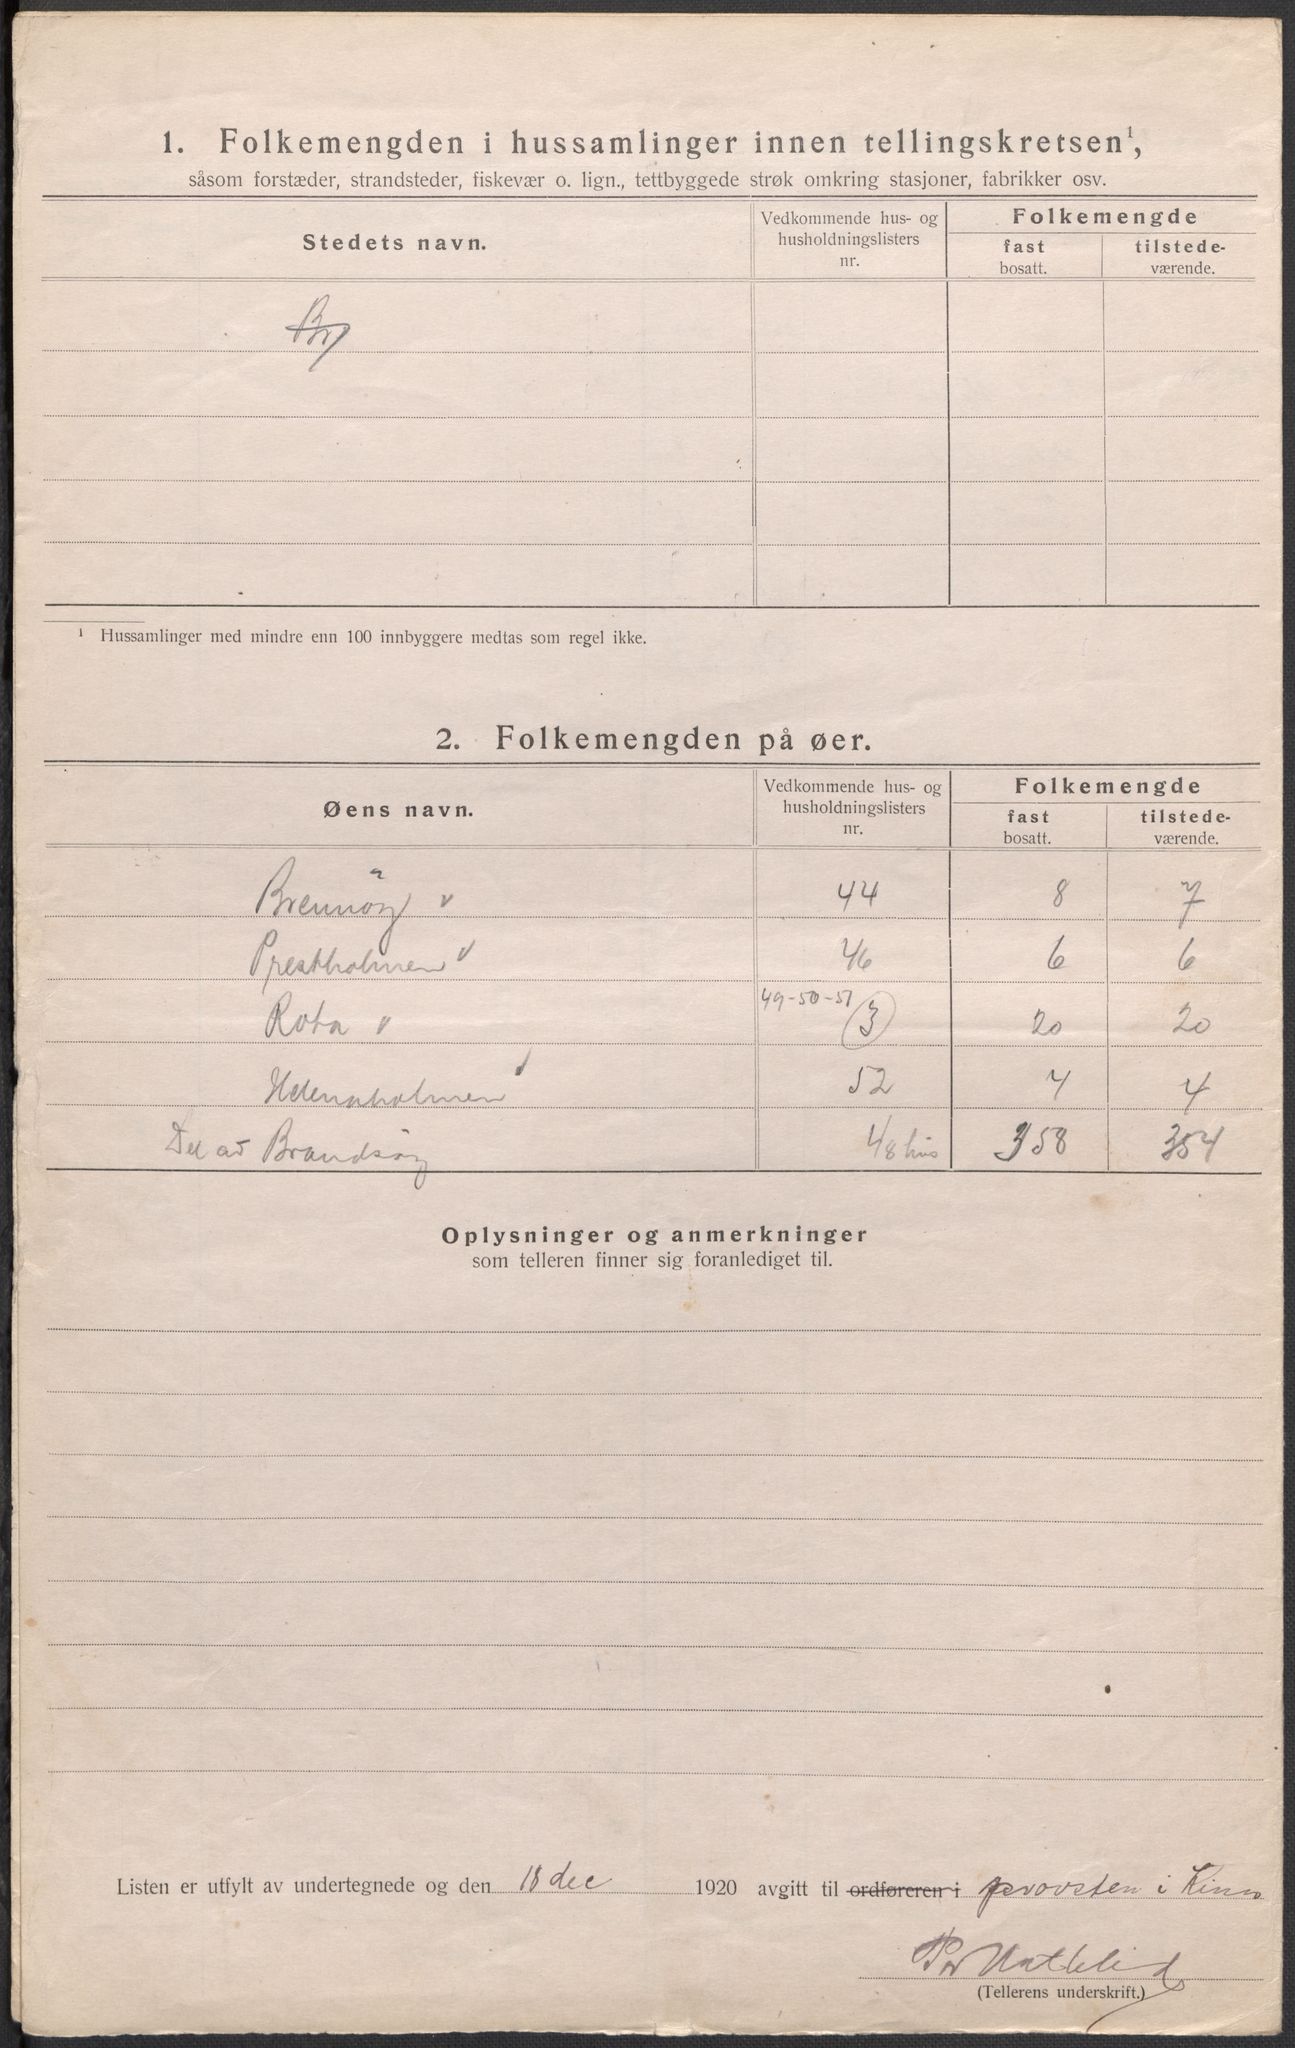 1. Folkemengden i hussamlinger innen tellingskretsen¹,
såsom forstæder, strandsteder, fiskevær o. lign., tettbyggede strøk omkring stasjoner, fabrikker osv.
Stedets navn. Vedkommende hus- og husholdningslisters nr. Folkemengde fast bosatt. tilstedeværende.
Br
¹ Hussamlinger med mindre enn 100 innbyggere medtas som regel ikke.
2. Folkemengden på øer.
Øens navn. Vedkommende hus- og husholdningslisters nr. Folkemengde fast bosatt. tilstede-værende.
Brennöy 44 8 7
Prestholmen 46 6 6
49-50-51
Rota 3 20 20
Helenaholmen 52 4 4
Del av Brandsöy 48 hus 358 354
Oplysninger og anmerkninger
som telleren finner sig foranlediget til.
Listen er utfylt av undertegnede og den 18 dec 1920 avgitt til ordføreren i provsten i Kinn
Per Hatlelid
(Tellerens underskrift.)